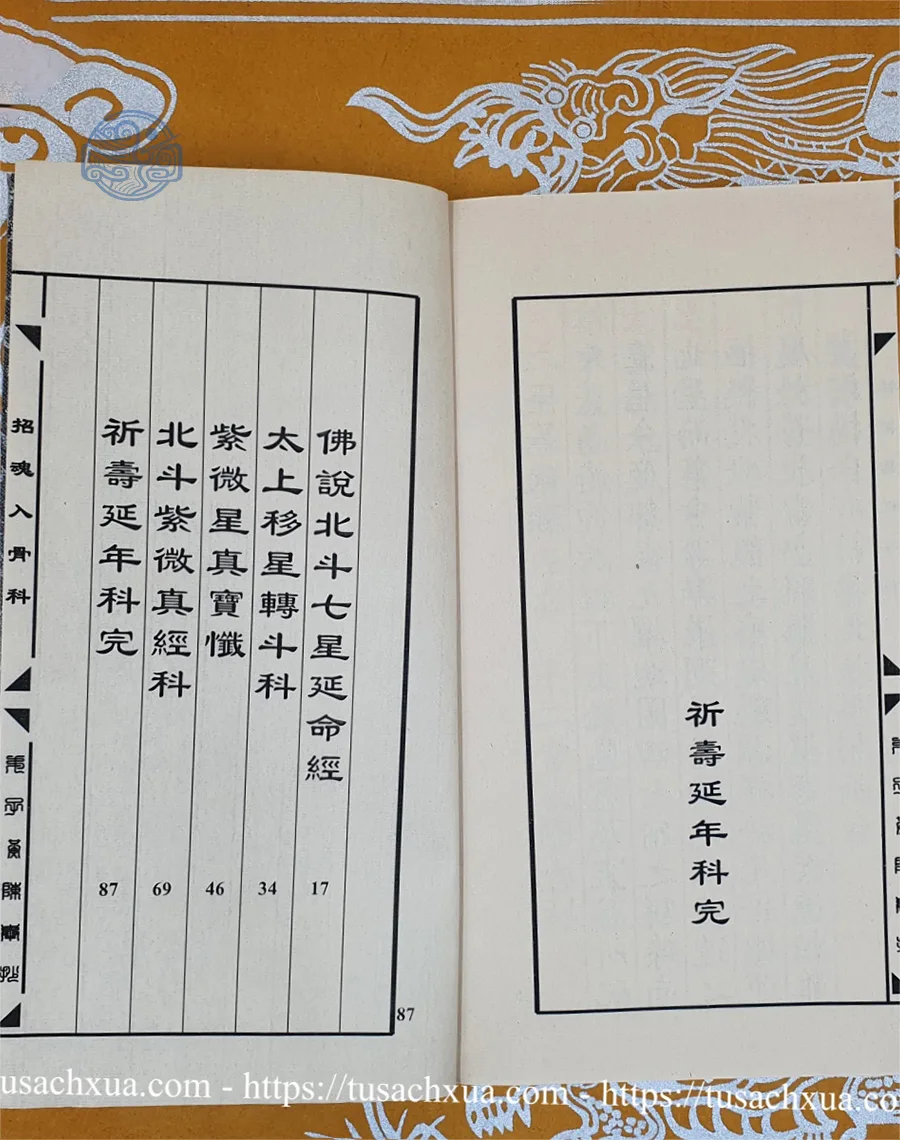 祈壽延年科完
佛說北斗七星延命經 17
太上移星轉斗科 34
紫微星真寶懺 46
北斗紫微真經科 69
祈壽延年科完 87
招魂入骨科
87
tusachxua.com - https://tusachxua.com - https://tusachxua.co